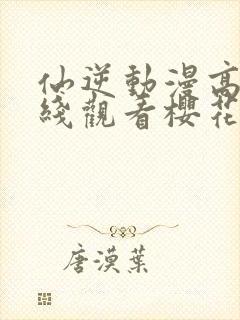 仙逆動漫高
綫觀看櫻花
唐漠葉